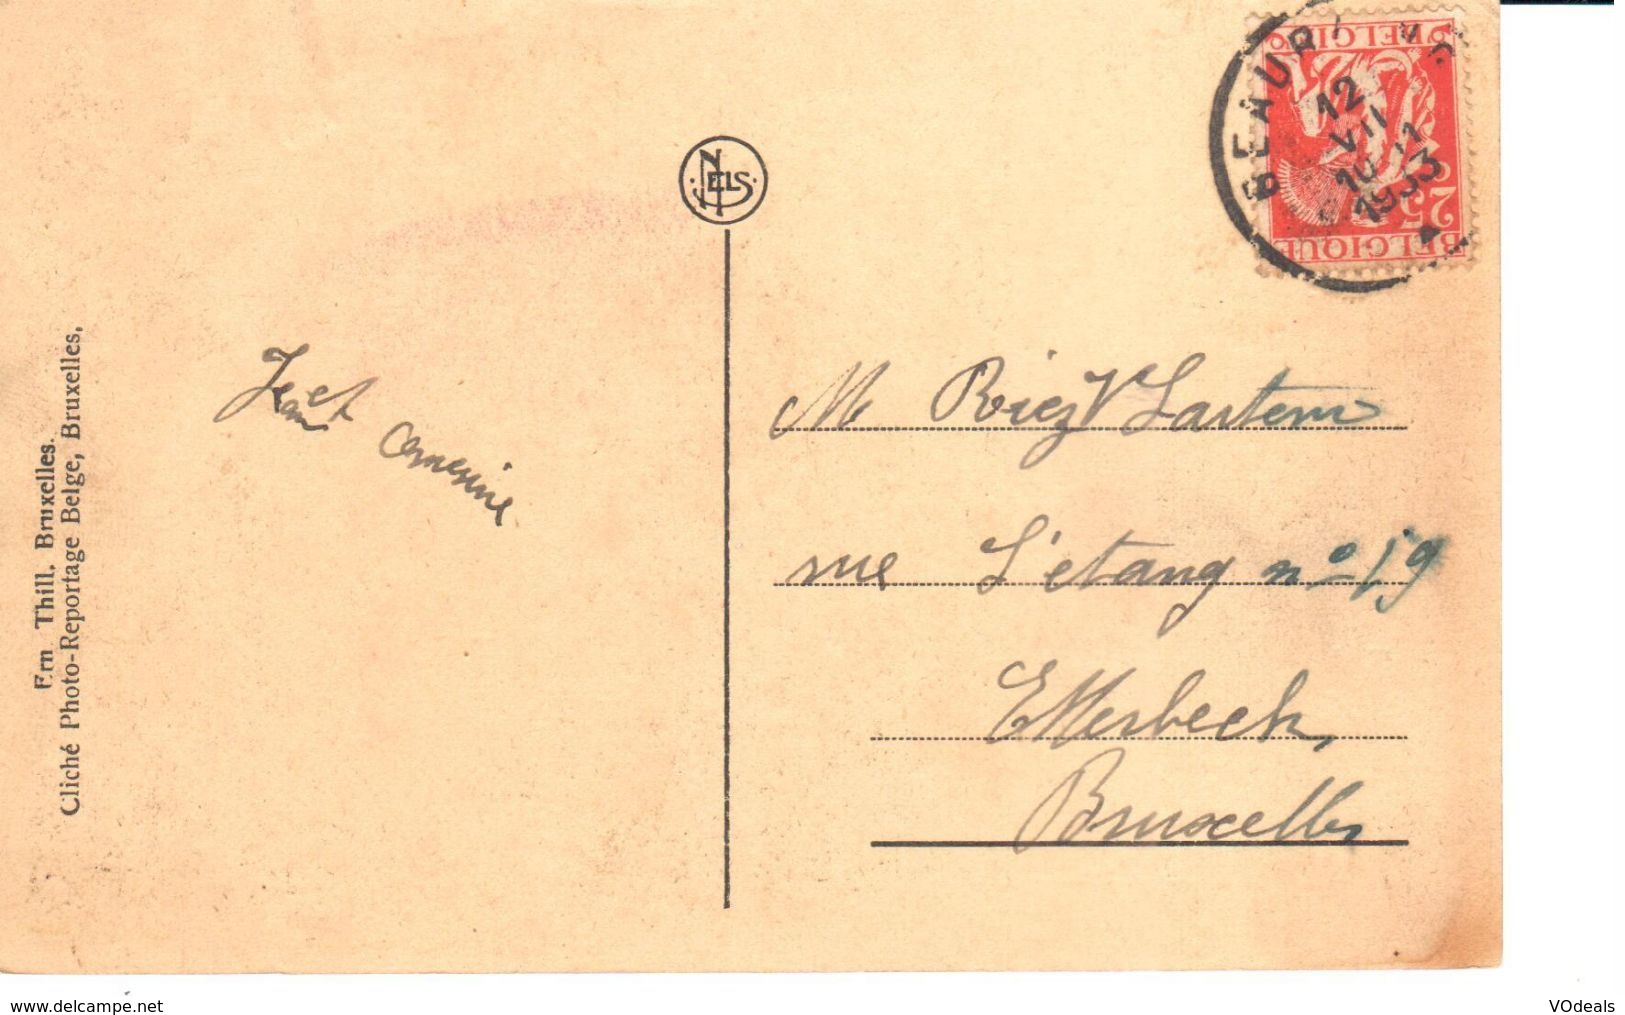 Ern Thill, Bruxelles.
Cliché Photo-Reportage Belge, Bruxelles.
NELS
BELGIQUE
25
BELGIË
BEAUR
12
VII
1933
Jean et
M Riez
rue L'étang n° 19
Etterbeek,
Bruxelles
www.delcampe.net
VOdeals